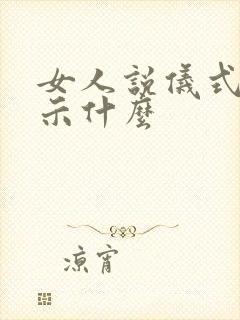 女人説儀式
示什麼
凉宵